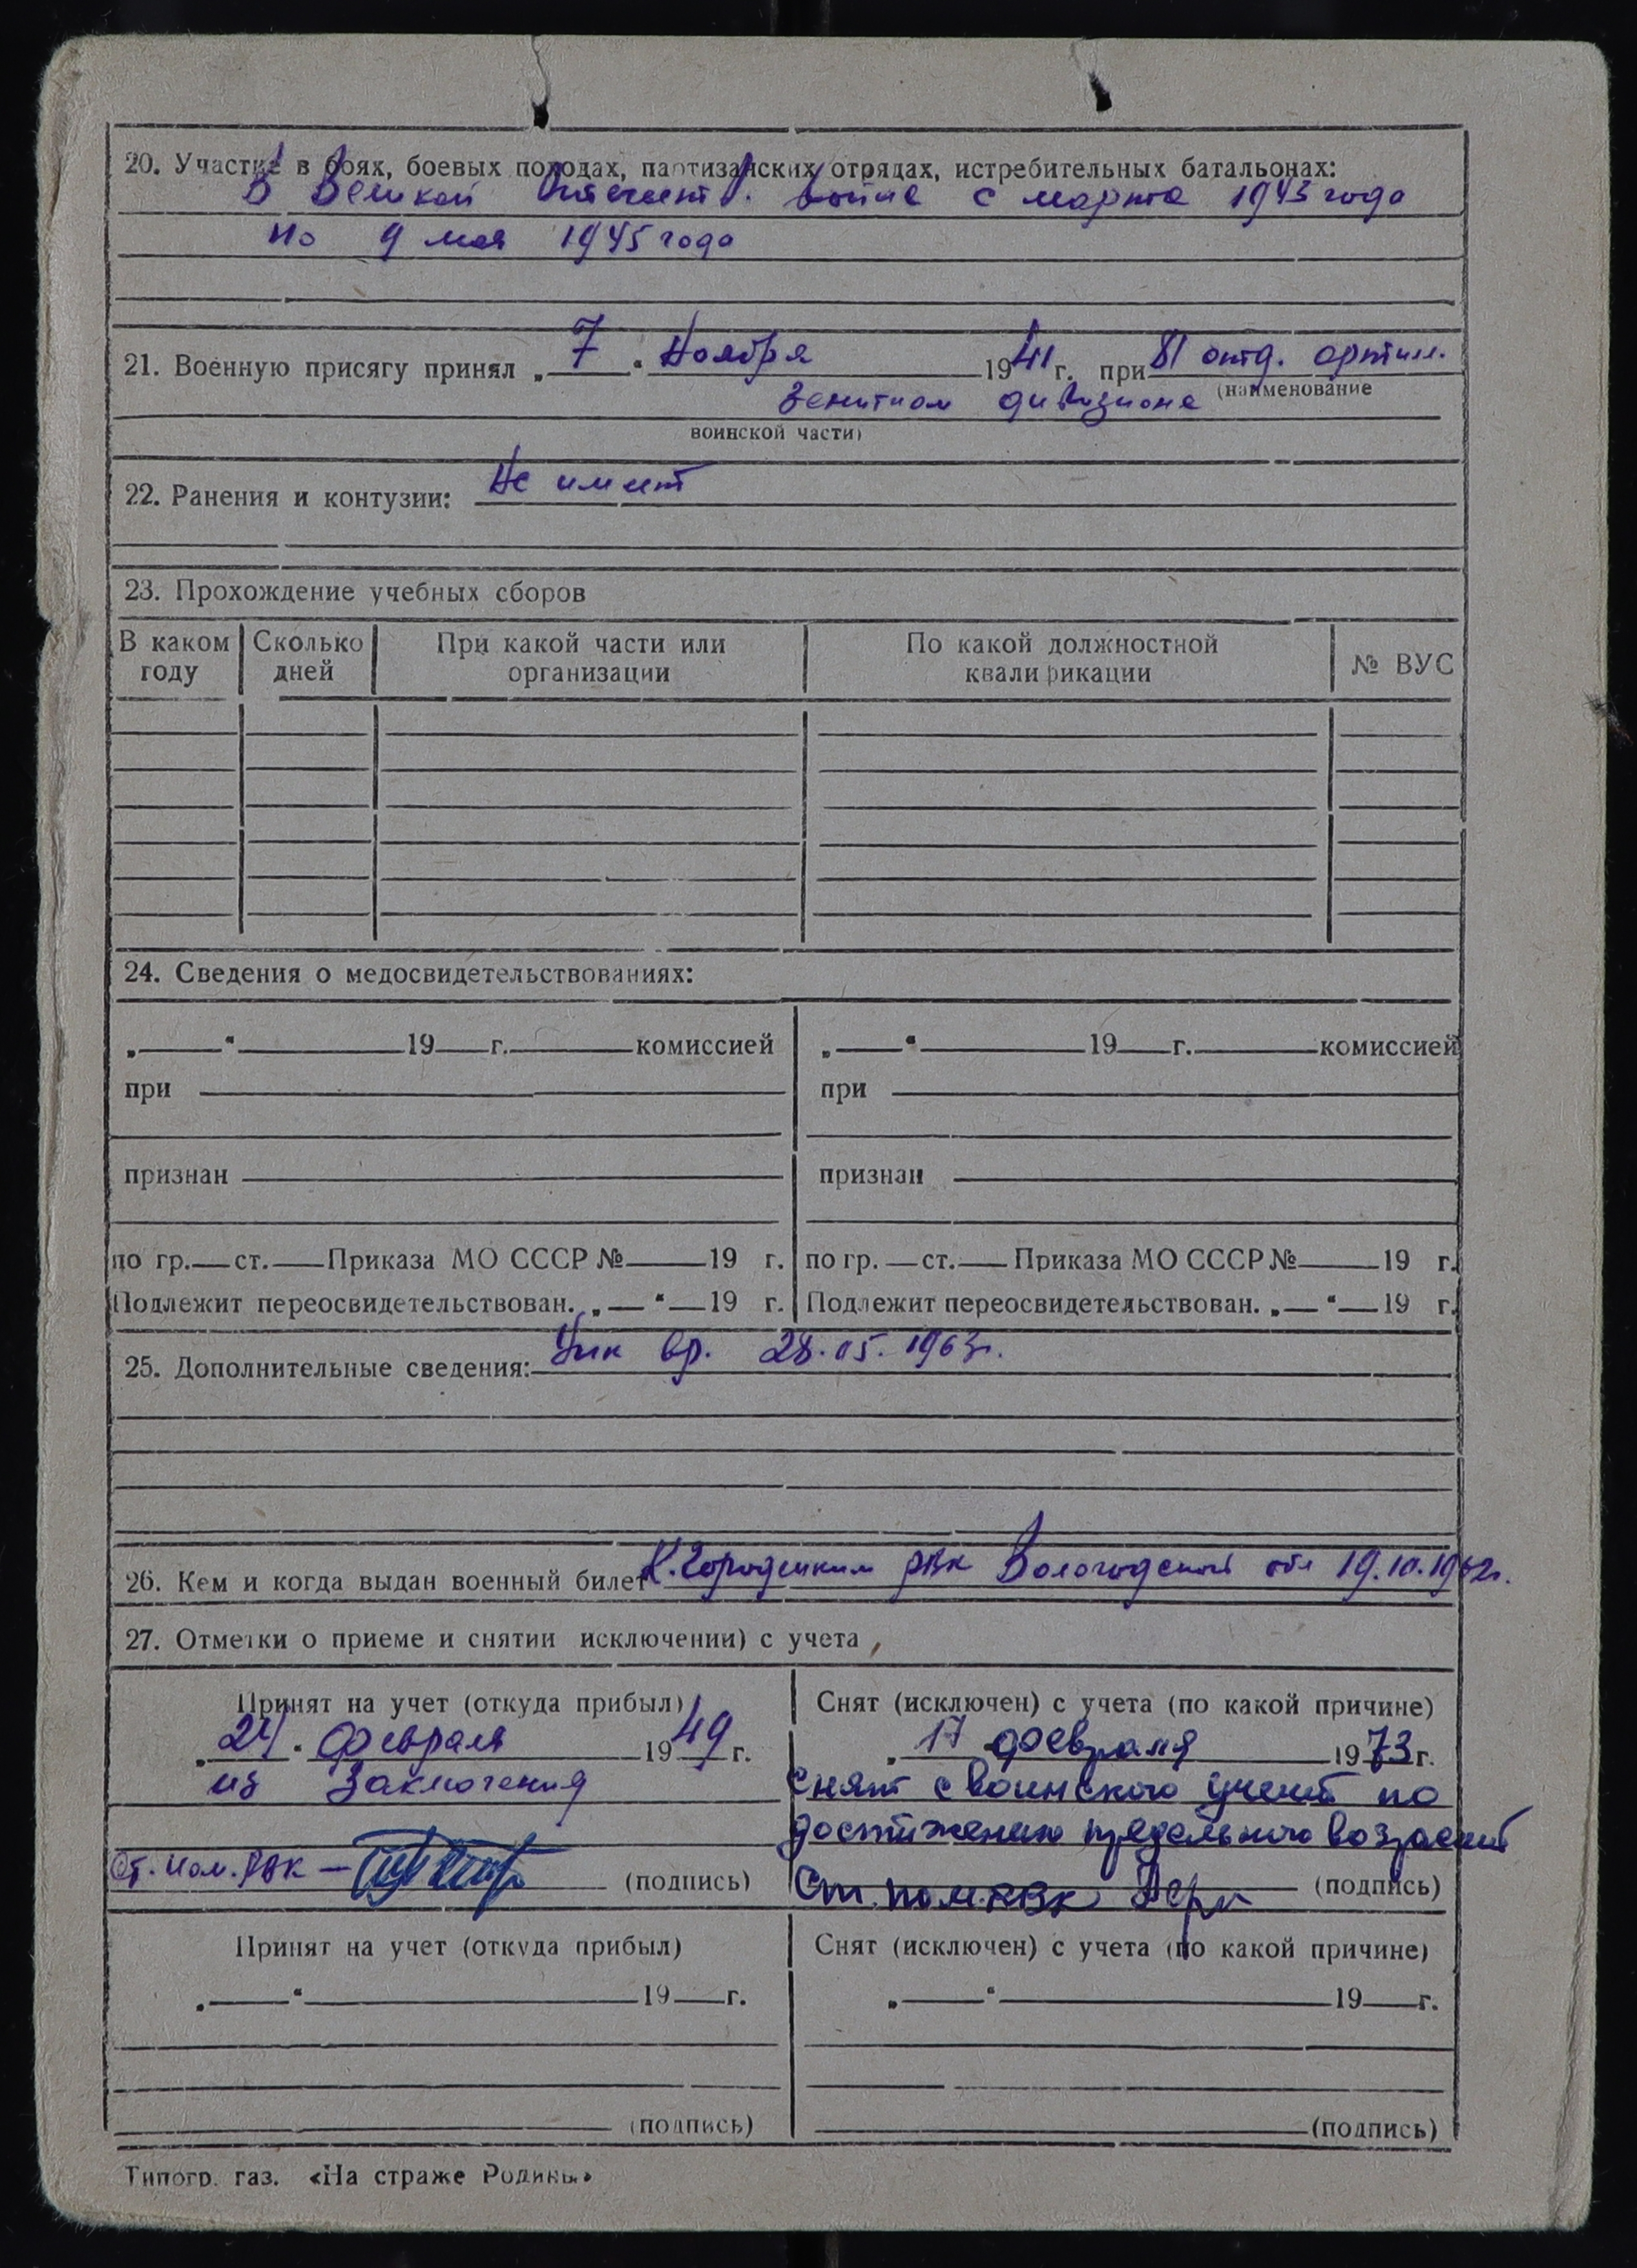 20. Участие в боях, боевых походах, партизанских отрядах, истребительных батальонах:
В Великой Отечест в. войне с марта 1943 года
по 9 мая 1945 года
21. Военную присягу принял „ 7 “ Ноября 1941 г. при 81 отд. артил.
зенитном дивизионе (наименование
воинской части)
22. Ранения и контузии: Не имеет
23. Прохождение учебных сборов
В каком году Сколько дней При какой части или организации По какой должностной квалификации № ВУС
24. Сведения о медосвидетельствованиях:
„ “ 19 г. комиссией „ “ 19 г. комиссией
при при
признан признан
по гр. ст. Приказа МО СССР № 19 г. по гр. ст. Приказа МО СССР № 19 г.
Подлежит переосвидетельствован. „ “ 19 г. Подлежит переосвидетельствован. „ “ 19 г.
25. Дополнительные сведения: 28.05.1963г.
26. Кем и когда выдан военный билет К. Городецким РВК Вологодской обл 19.10.1962г.
27. Отметки о приеме и снятии исключении) с учета
Принят на учет (откуда прибыл) Снят (исключен) с учета (по какой причине)
„ 24 “ февраля 1949 г. „ 17 февраля 1973 г.
из Заключения Снят с воинского учета по
достижению предельного возраста
Ст. пом. РВК – (подпись) Ст. пом. РВК (подпись)
Принят на учет (откуда прибыл) Снят (исключен) с учета (по какой причине)
„ “ 19 г. „ “ 19 г.
(подпись) (подпись)
Типогр. газ. «На страже Родины»